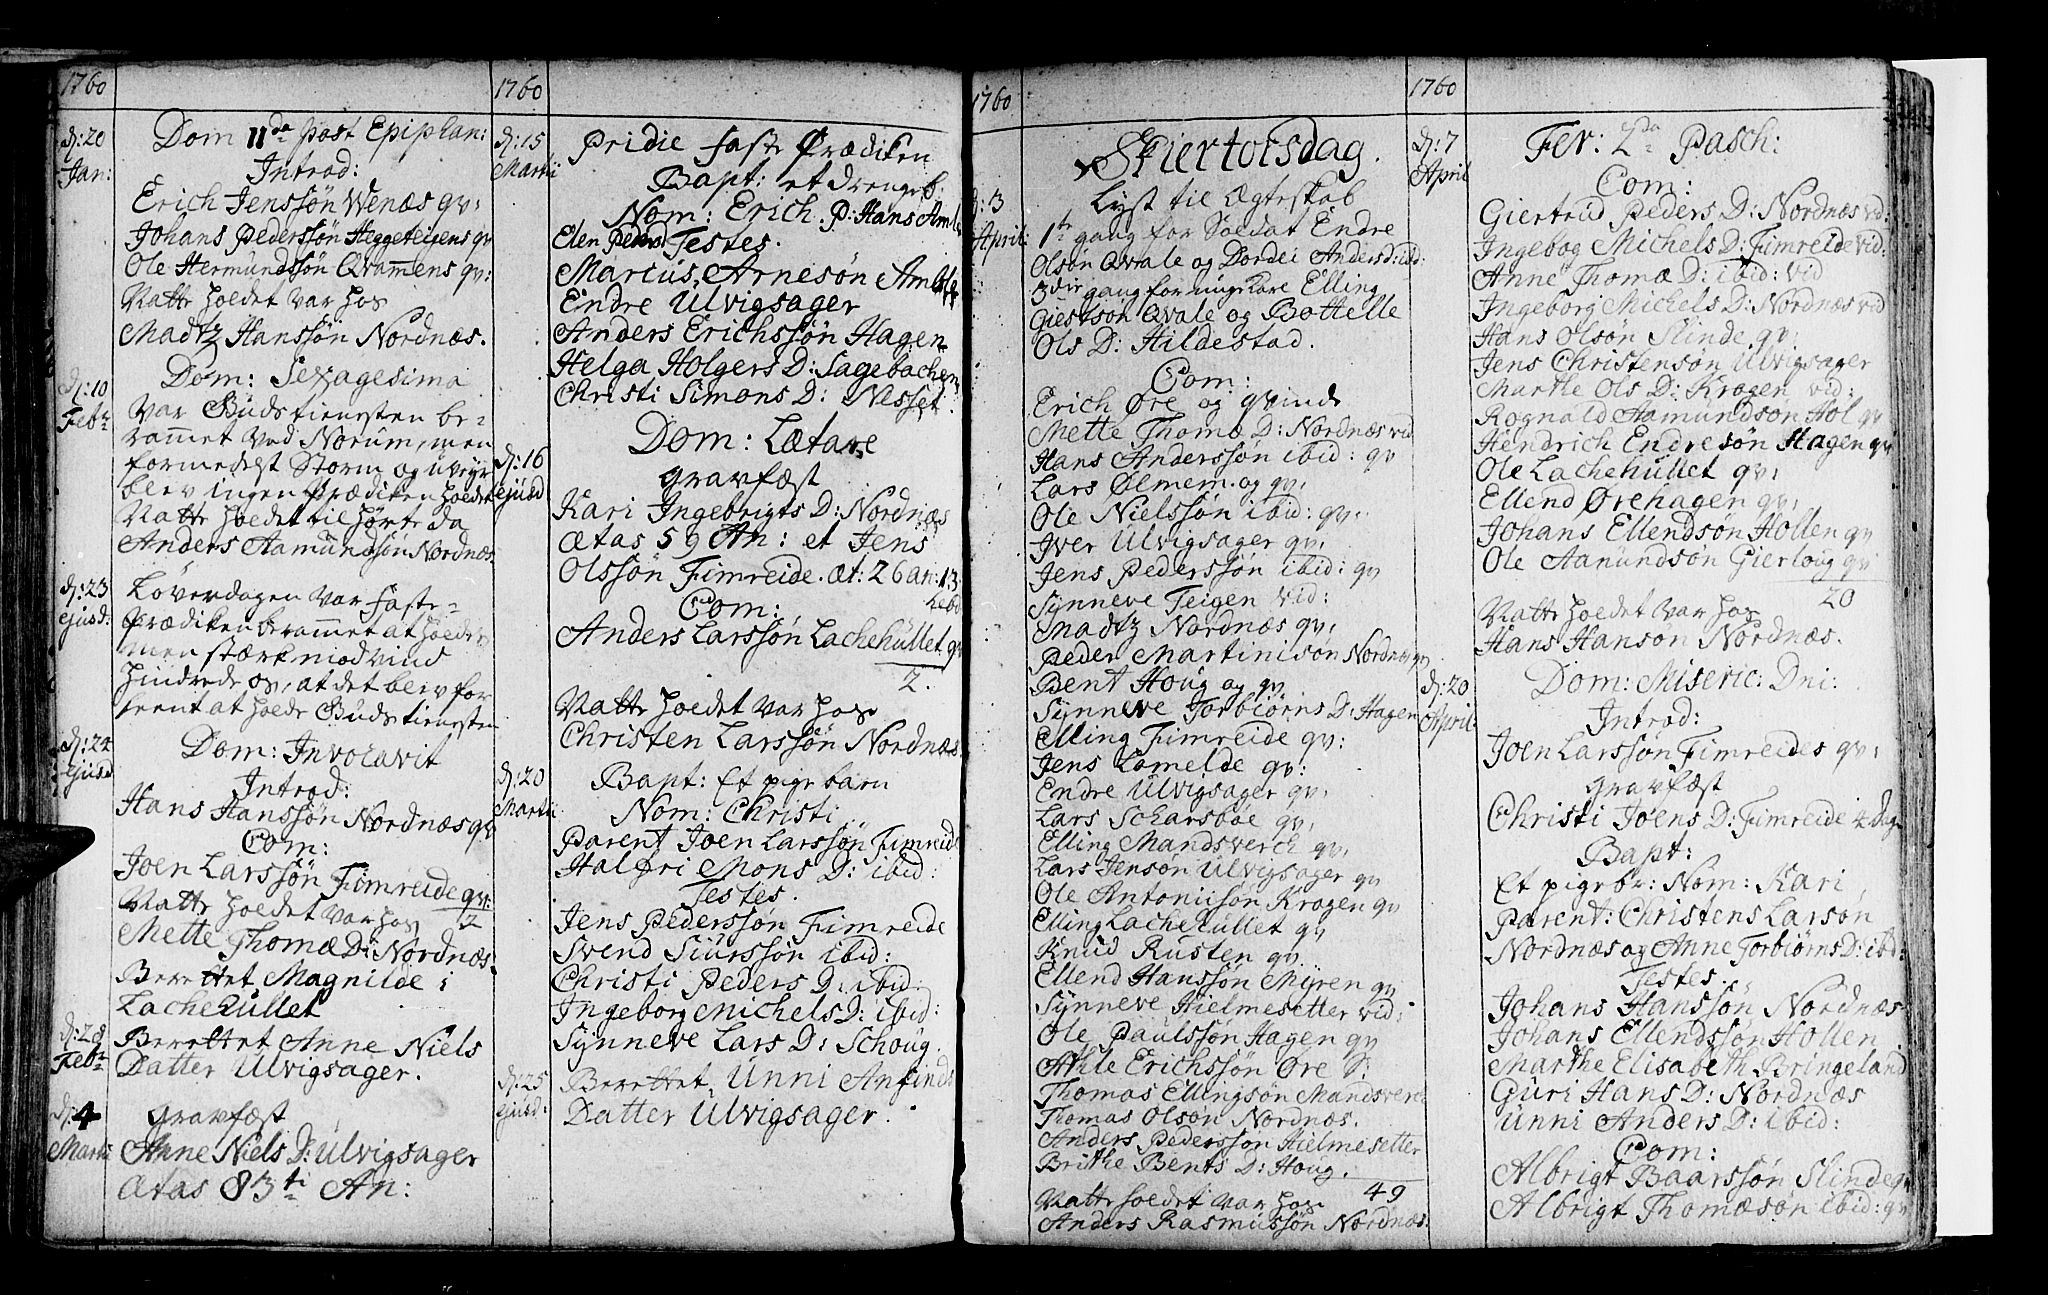 1760
d: 20 Jan:
Dom 11da post Epiphan:
Introd:
Erich Jenssøn Wenæs qv:
Johans Pederssøn Heggeteigens qv
Ole Hermundssøn Qvamens qv:
Natte holdet var hos
Madtz Hanssøn Nordnæs.
d: 10 Febr
Dom: Sexagesima
var Gudstienesten be-
rammet ved Norum, men
formedelst Storm og uveyr
blev ingen Prædiken holdet
Natte holdet til hørte da
Anders Aamundsøn Nordnæs.
d: 23 ejusd:
Løverdagen var faste-
Prædiken berammet at holdes
men stærk modvind
hindrede os, at det blev for
seent at holde Gudstienesten
d: 24 ejusd
Dom: Invocavit
Introd:
Hans Hanssøn Nordnæs qv
Com:
Joen Larssøn Fimreide qv:
2
Natte holdet var hos
Mette Thomæ D: Nordnæs.
Berettet Magnilde i
Lachehullet
d: 28 Febr
Berettet Anne Niels
Datter Ulvigsager.
d: 4 Martii
Gravfæst
Anne Niels D: Ulvigsager
ætas 83ti An:
1760
d: 15 Martii
Pridie faste Prædiken
Bapt: et drengeb:
Nom: Erich. P: Hans Amble
Elen Peders Testes.
Marcus Arnesøn Amble
Endre Ulvigsager
Anders Erichssøn Hagen
Helga Holgers D: Sagebachen
Christi Simons D: Nesset.
d: 16 ejusd
Dom: Lætare
gravfæst
Kari Ingebrigts D: Nordnæs
Ætas 59 An: et Jens
Olssøn Fimreide. æt: 26 an: 13
hebd
Com:
Anders Larssøn Lachehullet qv
2.
Natte holdet var hos
Christen Larssøn Nordnæs
d: 20 Martii
Bapt: Et pige barn
Nom: Christi
Parent Joen Larssøn Fimreide
Halfri Mons D: ibid:
Testes.
Jens Pederssøn Fimreide
Svend Siurssøn ibid:
Christi Peders D: ibid:
Ingeborg Michels D: ibid:
Synneve Lars D: Schoug.
d: 25 ejusd:
Berettet Unni Anfinds
Datter Ulvigsager.
1760
d: 3 April:
Skiertorsdag.
Lyst til Ægteskab
1te gang for Soldat Endre
Olsøn Qvale og Dordei Anders D: ibid:
3die gang for ungekare Elling
Giestson Qvale og Bottelle
Ols D: Hildestad.
Com:
Erich Øre og qvinde
Mette Thomæ D: Nordnæs vid
Hans Anderssøn ibid: qv
Lars Ølmem. og qv.
Ole Nielssøn ibid: qv.
Iver Ulvigsager qv.
Jens Pederssøn ibid: qv
Synneve Teigen vid:
Madtz Nordnæs qv.
Peder Martinisøn Nordnæs qv
Bent Houg og qv
Synneve Torbiørns D: Hagen
Elling Fimreide qv:
Jens Lomelde qv:
Endre Ulvigsager qv.
Lars Scharsbøe qv,
Elling Mandsverch qv.
Lars Jensøn Ulvigsager qv
Ole Antoniisøn Krogen qv
Elling Lachehullet qv
Knud Rusten qv.
Ellend Hanssøn Myren qv
Synneve Hielmesetter vid:
Ole Paulssøn Hagen qv
Athle Erichssøn Øre S:
Thomas Ellingsøn Mandsverc
Thomas Olsøn Nordnæs.
Anders Pederssøn Hielmesetter
Brithe Bents D: Houg.
49
Natte holdet var hos
Anders Rasmussøn Nordnæs.
1760
d: 7 April
Fer: 2da Pasch:
Com:
Giertrud Peders D: Nordnæs vid:
Ingebog Michels D: Fimreide vid:
Anne Thomæ D: ibid: vid
Ingeborg Michels D: Nordnæs vid
Hans Olsøn Slinde qv:
Jens Christensøn Ulvigsager
Marthe Ols D: Krogen vid:
Rognald Aamundson Hol qv
Hendrich Endresøn Hagen qv
Ole Lachehullet qv.
Ellend Ørehagen qv.
Johans Ellendsøn Hollen qv
Ole Aamundsøn Gierloug qv
20
Natte holdet var hos
Hans Hanson Nordnæs.
d: 20 April
Dom: Miseric: Dni:
Introd:
Joen Larssøn Fimreides qv:
gravfæst
Christi Joens D: Fimreide 4 Dage
Bapt:
Et pigebr: Nom: Kari
Parent: Christens Larsøn
Nordnæs og Anne Torbiørns D: ibid:
Testes.
Johans Hanssøn Nordnæs
Johans Ellendssøn Hollen
Marthe Elisabeth Bringeland
Guri Hans D: Nordnæs
Unni Anders D: ibid:
Com:
Albrigt Baarssøn Slinde qv
Albrigt Thomæsøn ibid: qv